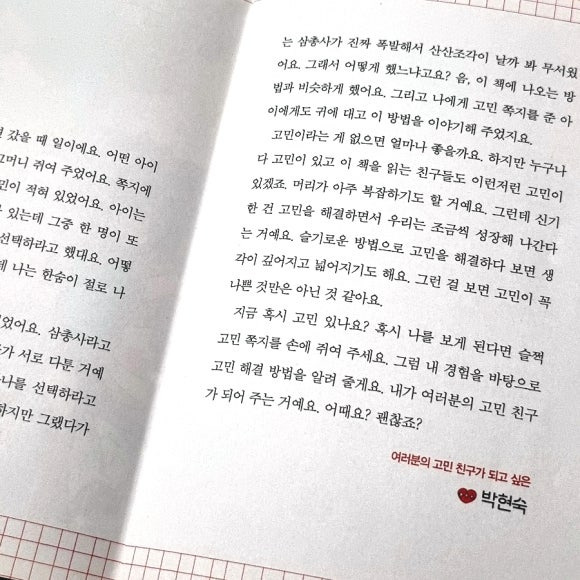 갔을 때 일이에요. 어떤 아이
쥐여 주었어요. 쪽지에
적혀 있었어요. 아이는
있는데 그중 한 명이 또
선택하라고 했대요. 어떻
나는 한숨이 절로 나
삼총사라고
서로 다툰 거예
선택하라고
하지만 그랬다가
는 삼총사가 진짜 폭발해서 산산조각이 날까 봐 무서웠
어요. 그래서 어떻게 했느냐고요? 음, 이 책에 나오는 방
법과 비슷하게 했어요. 그리고 나에게 고민 쪽지를 준 아
이에게도 귀에 대고 이 방법을 이야기해 주었지요.
고민이라는 게 없으면 얼마나 좋을까요. 하지만 누구나
다 고민이 있고 이 책을 읽는 친구들도 이런저런 고민이
있겠죠. 머리가 아주 복잡하기도 할 거예요. 그런데 신기
한 건 고민을 해결하면서 우리는 조금씩 성장해 나간다
는 거예요. 슬기로운 방법으로 고민을 해결하다 보면 생
각이 깊어지고 넓어지기도 해요. 그런 걸 보면 고민이 꼭
나쁜 것만은 아닌 것 같아요.
지금 혹시 고민 있나요? 혹시 나를 보게 된다면 슬쩍
고민 쪽지를 손에 쥐여 주세요. 그럼 내 경험을 바탕으로
고민 해결 방법을 알려 줄게요. 내가 여러분의 고민 친구
가 되어 주는 거예요. 어때요? 괜찮죠?
여러분의 고민 친구가 되고 싶은
박현숙